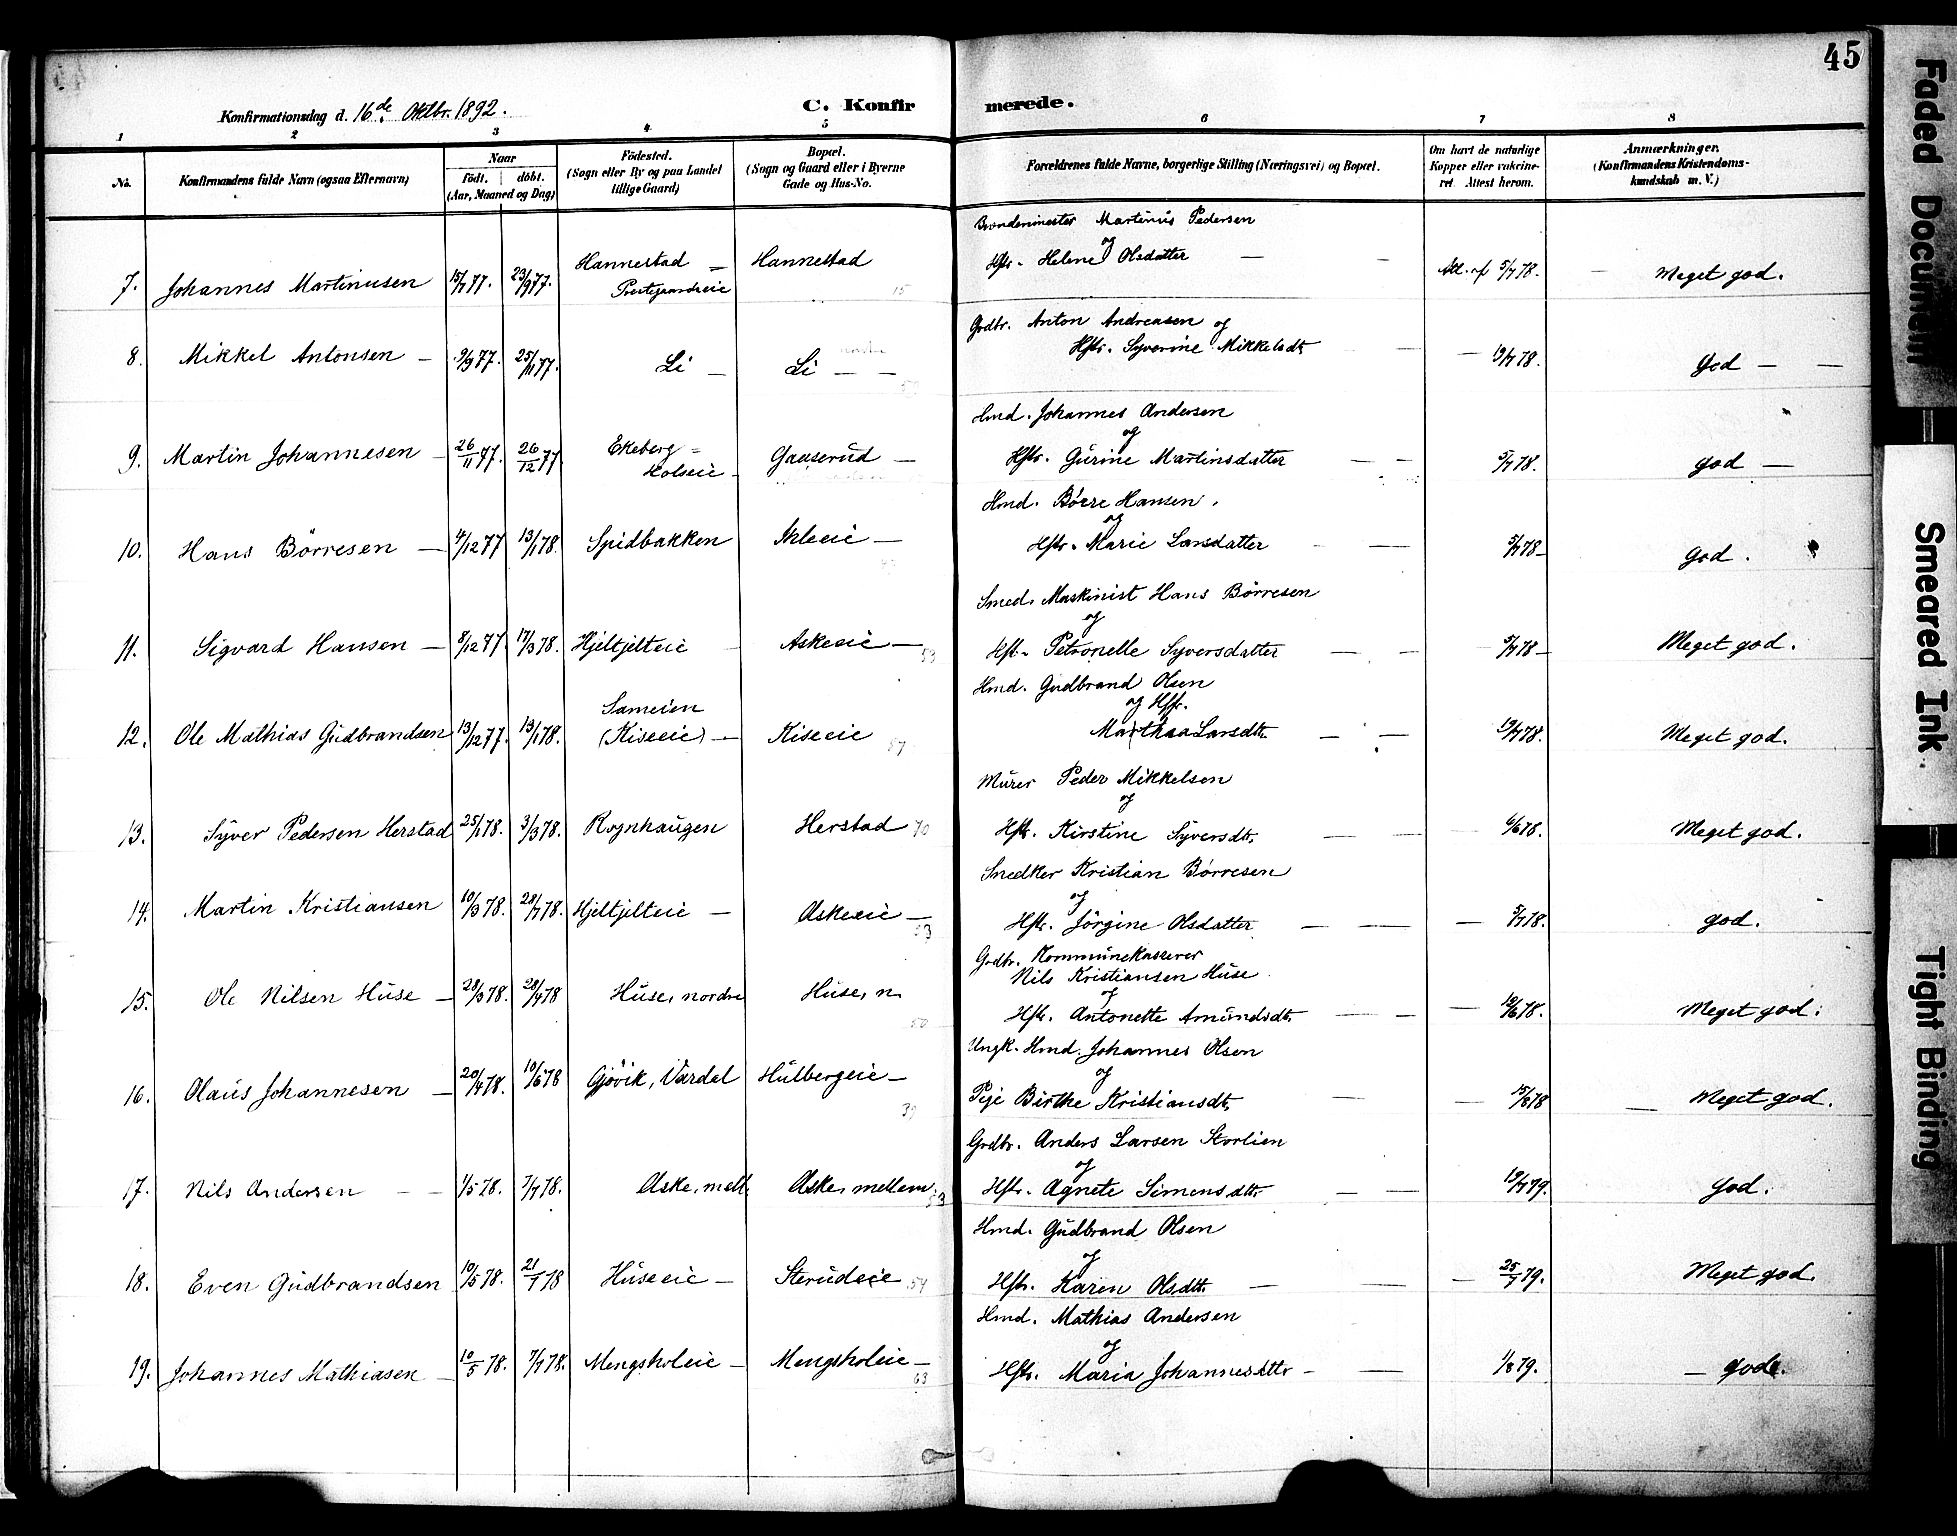 45
Konfirmationsdag d. 16de Oktbr. 1892.
C. Konfirmerede.
1 2 3 4 5 6 7 8
No.
Konfirmandens fulde Navn (ogsaa Efternavn)
Naar
födt. döbt.
(Aar, Maaned og Dag)
Födested.
(Sogn eller By og paa Landet
tillige Gaard)
Bopæl.
(Sogn og Gaard eller i Byerne
Gade og Hus-No.
Forældrenes fulde Navne, borgerlige Stilling (Næringsvei) og Bopæl.
Om havt de naturlige
Kopper eller vakcine-
ret Attest herom.
Anmærkninger.
(Konfirmandens Kristendoms-
kundskab m. V.)
Brøndenmester Martinus Pedersen
og
7. Johannes Martinusen 15/7 77. 23/9 77. Hannestad = Prestegaardseie Hannestad 15 Hstr. Helene Olsdatter — - Att. af 5/7 78. Meget god.
Grdbr. Anton Andreasen og
8. Mikkel Antonsen — 9/9 77. 25/11 77. Li — Li — — Hstr. Syverine Mikkelsdt. — — 19/7 78. God — —
Hmd. Johannes Andersen
og
9. Martin Johannesen — 26/11 77. 26/12 77. Ekeberg = Holseie — Gaaserud — Hstr. Gurine Martinsdatter — — 5/7 78. god —
Hmd. Börre Hansen.
og
10. Hans Börresen — 4/12 77 13/1 78. Spidbakken Skleeie — Hstr. Marie Larsdatter — — 5/7 78 — god.
Smed. Maskinist Hans Börresen
og
11. Sigvard Hansen — 8/12 77. 17/3 78. Hjeltjelteie - Askeeie — 53 Hst. Petronelle Syversdatter — — 5/7 78 — Meget god.
Hmd. Gudbrand Olsen
og Hstr.
12. Ole Mathias Gudbrandsen 13/12 77. 13/1 78. Sameien (Kiseeie) — Kiseeie 87 Marthea Larsdt. — — 19/7 78. Meget god.
Murer Peder Mikkelsen
og
13. Syver Pedersen Herstad 25/1 78. 3/3 78. Rognhaugen Herstad 70 Hstr. Kirstine Syversdt. — — 6/6 78. Meget god.
Snedker Kristian Börresen
og
14. Martin Kristiansen 10/3 78. 28/4 78. Hjeltjelteie — Askeeie — 53 Hstr. Jörgine Olsdatter — — — 5/7 78. god.
Grdbr. Kommunekasserer
Nils Kristiansen Huse
og
15. Ole Nilsen Huse — 28/3 78. 28/4 78 Huse, nordre Huse, n. 50 Hstr. Antonette Amundsdt. — — — 10/6 78. Meget god.
Ungk. Hmd. Johannes Olsen
og
16. Olaus Johannesen — 20/4 78. 10/6 78 Gjövik, Vardal Hulbergeie — 39 Pige Birthe Kristiansdt. — — 15/8 78 — Meget god.
Grdbr. Anders Larsen Storlien
og
17. Nils Andersen — — 1/5 78. 7/7 78. Aske, mell. Aske, mellem. 53 Hstr. Agnete Simensdtr. — — 19/7 79. God.
Hmd. Gudbrand Olsen
og
18. Even Gudbrandsen 10/5 78. 21/7 78 Huseeie — Sterudeie 54 Hstr. Karen Olsdtt. — — — 25/7 79. Meget god.
Hmd. Mathias Andersen
og
19. Johannes Mathiasen — 10/5 78. 7/7 78. Mengsholeie — Mengsholeie — 63 Hstr. Maria Johannesdtr — — 1/8 79. — god.
Faded Document
Smeared Ink.
Tight Binding